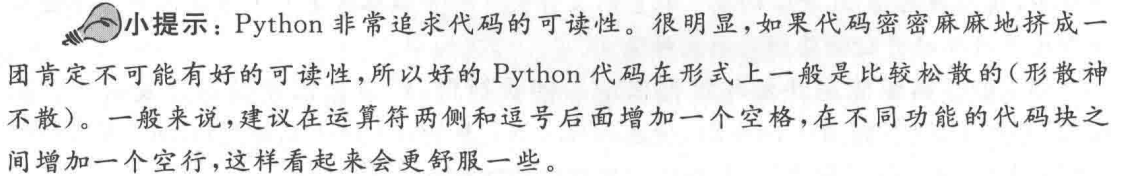 小提示：Python 非常追求代码的可读性。很明显，如果代码密密麻麻地挤成一
团肯定不可能有好的可读性，所以好的 Python 代码在形式上一般是比较松散的（形散神
不散）。一般来说，建议在运算符两侧和逗号后面增加一个空格，在不同功能的代码块之
间增加一个空行，这样看起来会更舒服一些。